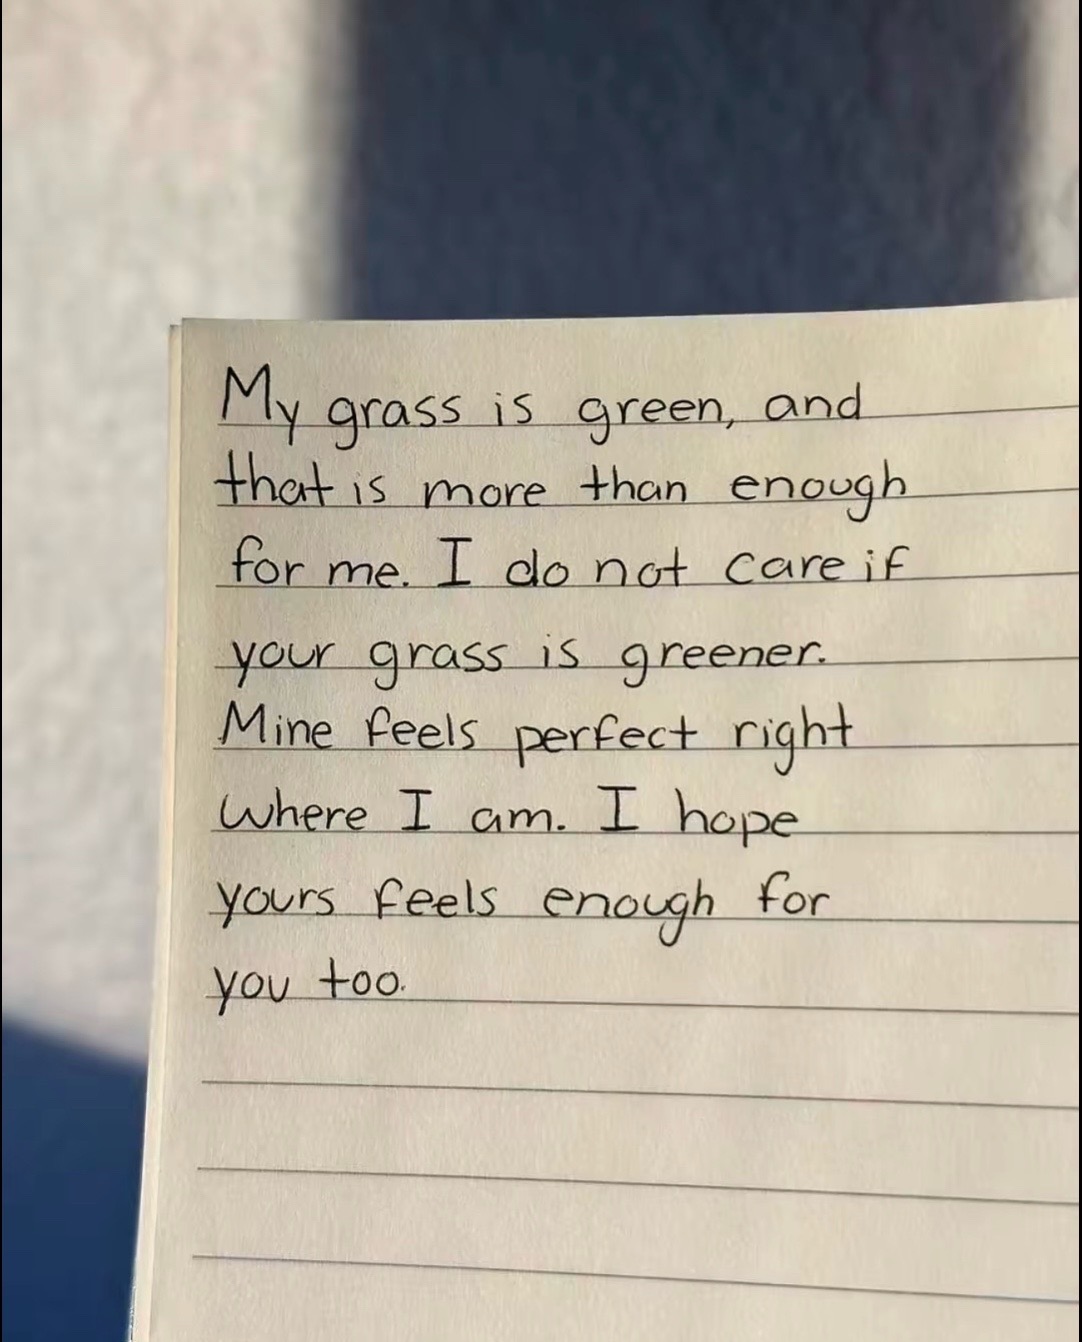 My grass is green, and
that is more than enough
for me. I do not care if
your grass is greener.
Mine feels perfect right
where I am. I hope
yours feels enough for
you too.